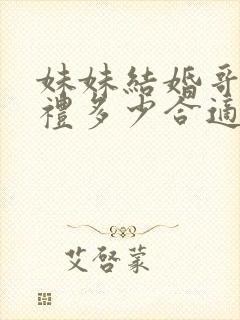 妹妹結婚哥
禮多少合適
艾啓蒙